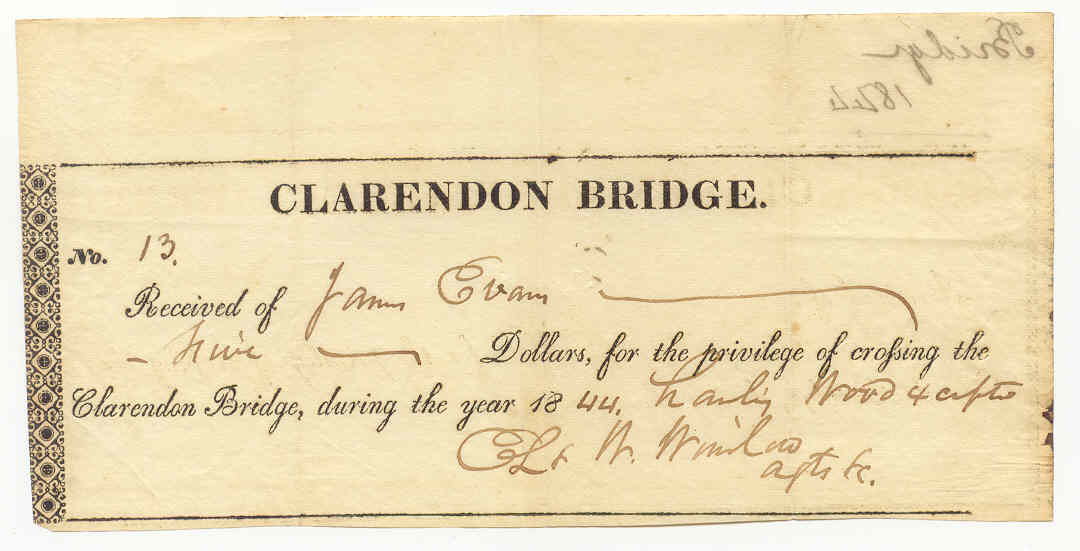 Bridge
1844
CLARENDON BRIDGE.
No. 13.
Received of James Evans
- Five - Dollars, for the privilege of croſsing the
Clarendon Bridge, during the year 1844. hauling Wood &
E L & W. Winslow
agts &c.